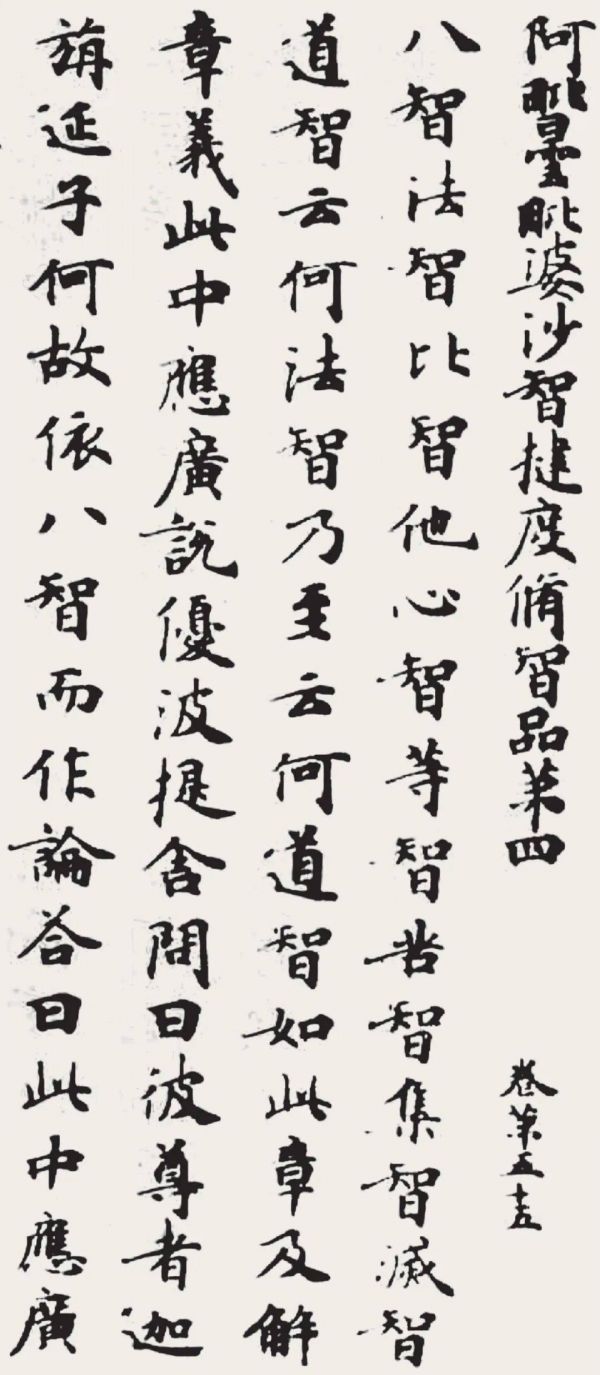 阿毗曇毗婆沙智揵度脩智品第四 卷第五十五
八智法智比智他心智等智苦智集智滅智
道智云何法智乃至云何道智如此章及解
章義此中應廣說優波提舍問曰彼尊者迦
旃延子何故依八智而作論荅曰此中應廣